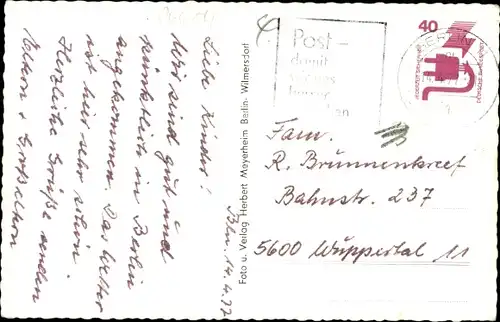 Bln. 14.4.77
Liebe Kinder!
Wir sind gut und
pünktlich in Berlin
angekommen. Das Wetter
ist hier sehr schön.
Herzliche Grüße senden
Eltern + Großeltern
Foto u. Verlag Herbert Meyerheim Berlin-Wilmersdorf
Post-
damit
40
Fam.
R. Brunnenkreef
Bahnstr. 237
5600 Wuppertal 11